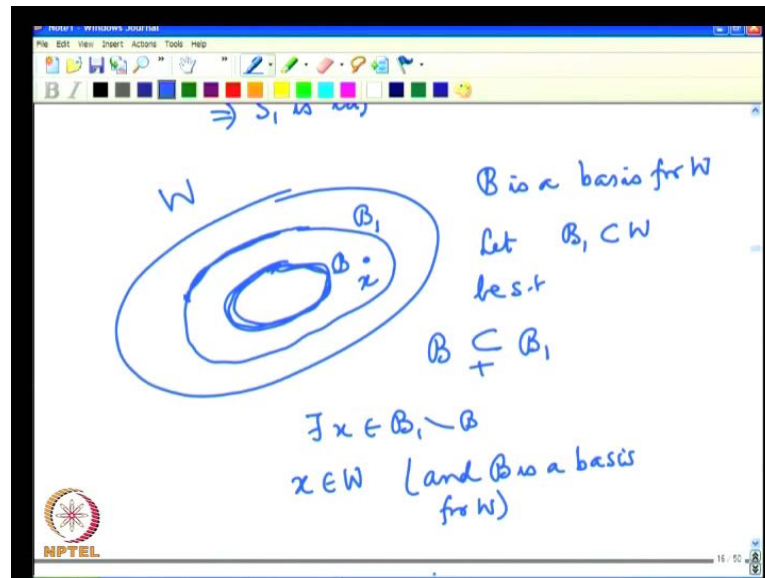 Note1 - Windows Journal
File Edit View Insert Actions Tools Help
B I
⇒ S₁ is
W
B₁
B
x
B is a basis for W
Let B₁ ⊂ W
be s.t
B ⊊ B₁
∃ x ∈ B₁ \ B
x ∈ W (and B is a basis
for W)
NPTEL
16 / 50